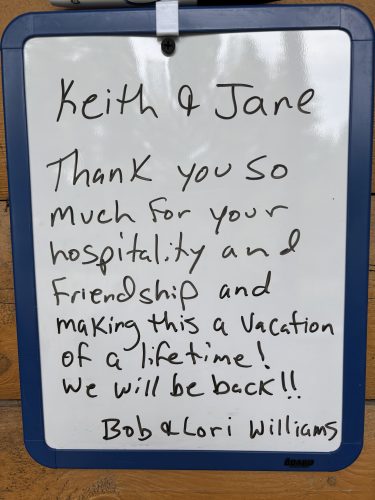 Keith & Jane
Thank you so
much for your
hospitality and
Friendship and
making this a vacation
of a lifetime!
We will be back!!
Bob & Lori Williams